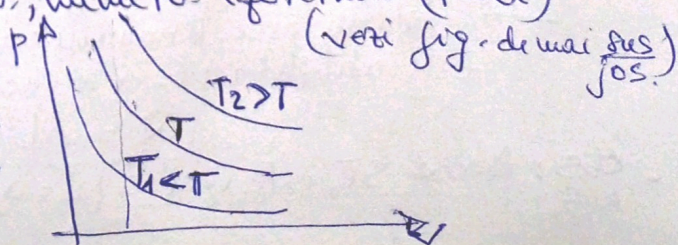 (vezi fig. de mai sus
jos.)
p
T₂>T
T
T₁<T